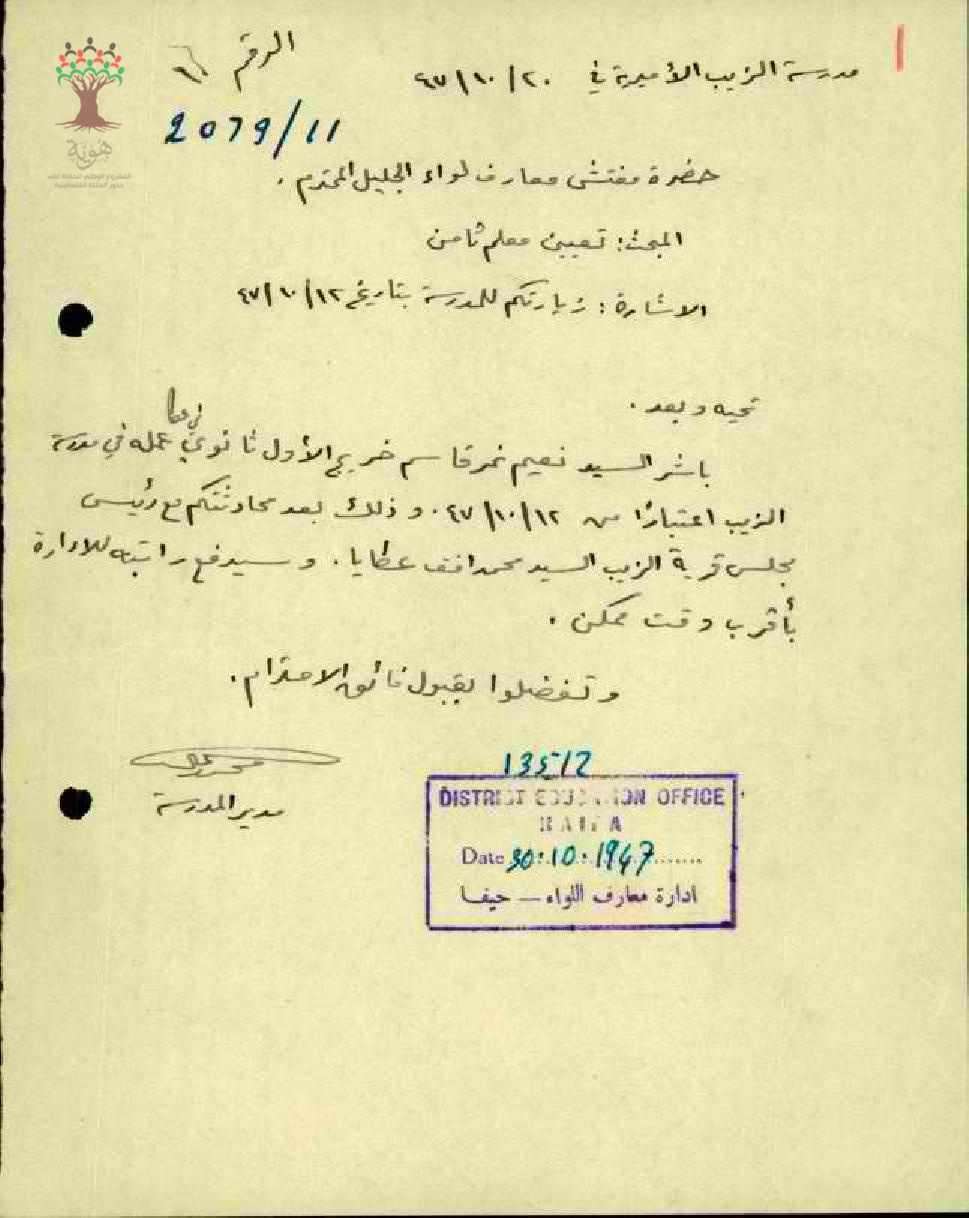 الرقم
مدرسة الزيب الأميرية في ٢٠/١٠/٤٧
2079/11
حضرة مفتش معارف لواء الجليل المحترم .
المبحث : تعيين معلم ثامن
الاشارة : زيارتكم للمدرسة بتاريخ ١٢/١٠/٤٧
تحيه وبعد .
باشر السيد نعيم نمر قاسم خريج الأول ثانوي في عكا عمله في مدرسة
الزيب اعتبارًا من ١٢/١٠/٤٧ . وذلك بعد محادثتكم مع رئيس
مجلس قرية الزيب السيد محمد افندي عطايا . وسيدفع راتبه للادارة
بأقرب وقت ممكن .
وتفضلوا بقبول فائق الاحترام .
مدير المدرسة
13512
DISTRICT EDUCATION OFFICE
HAIFA
Date 30.10.1947
ادارة معارف اللواء — حيفا
هوية